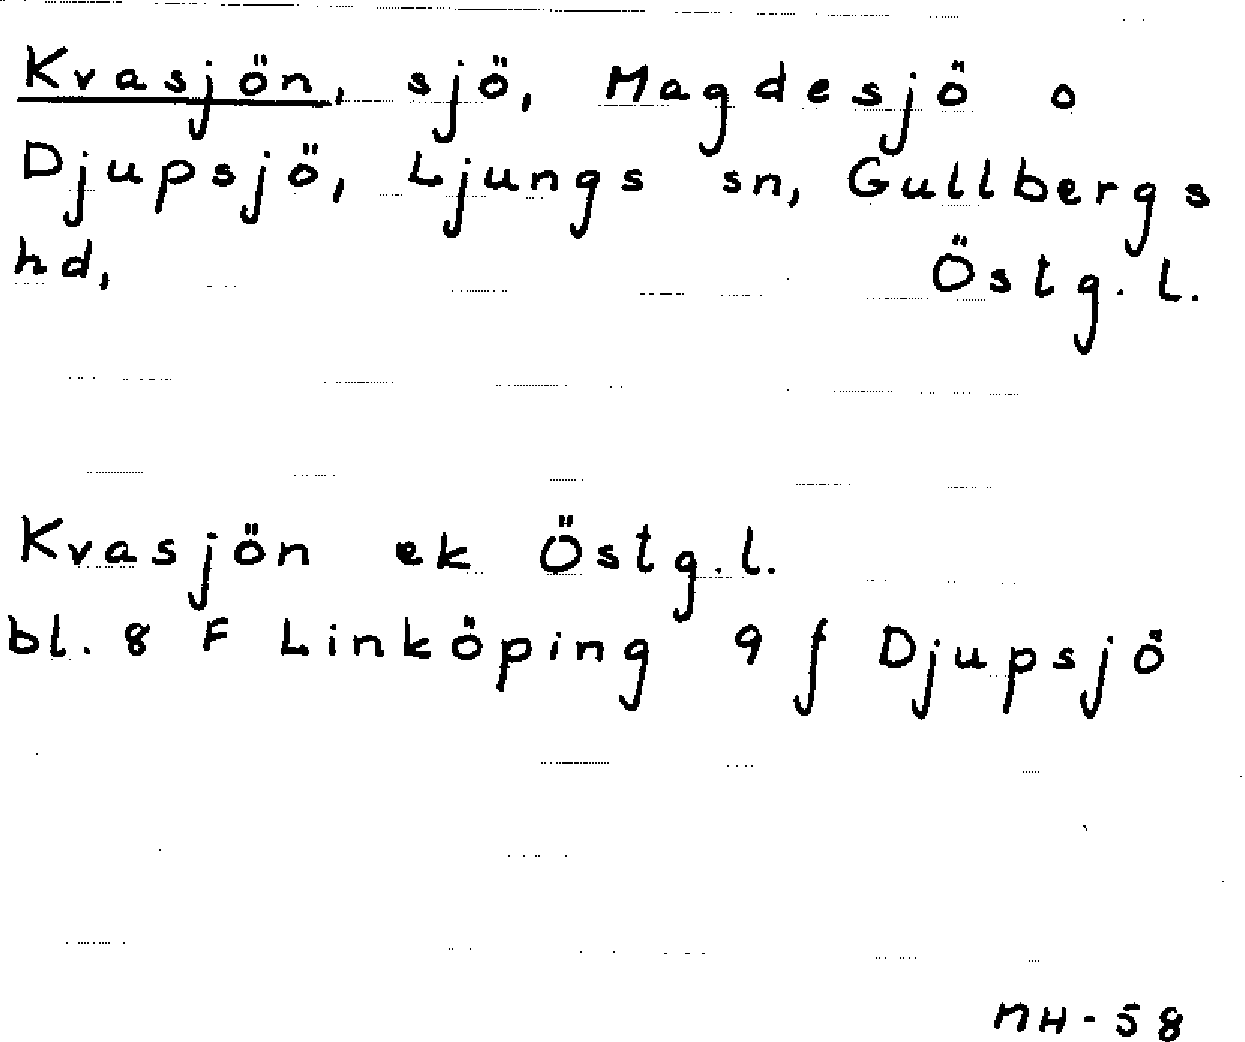 Kvasjön, sjö, Magdesjö o
Djupsjö, Ljungs sn, Gullbergs
hd, Östg. l.
Kvasjön ek Östg. l.
bl. 8 F Linköping 9 f Djupsjö
MH-58